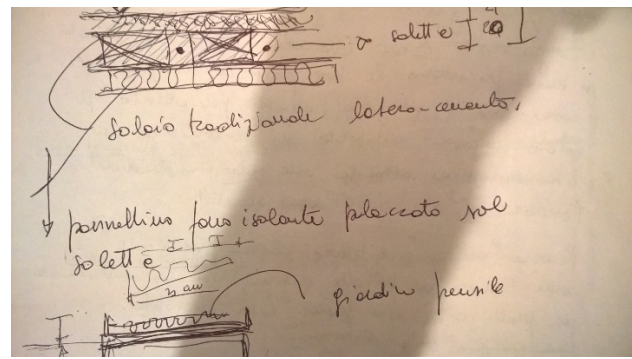 solette
solaio tradizionale latero-cemento.
pannellino fono isolante placcato sul
solette
giardino pensile